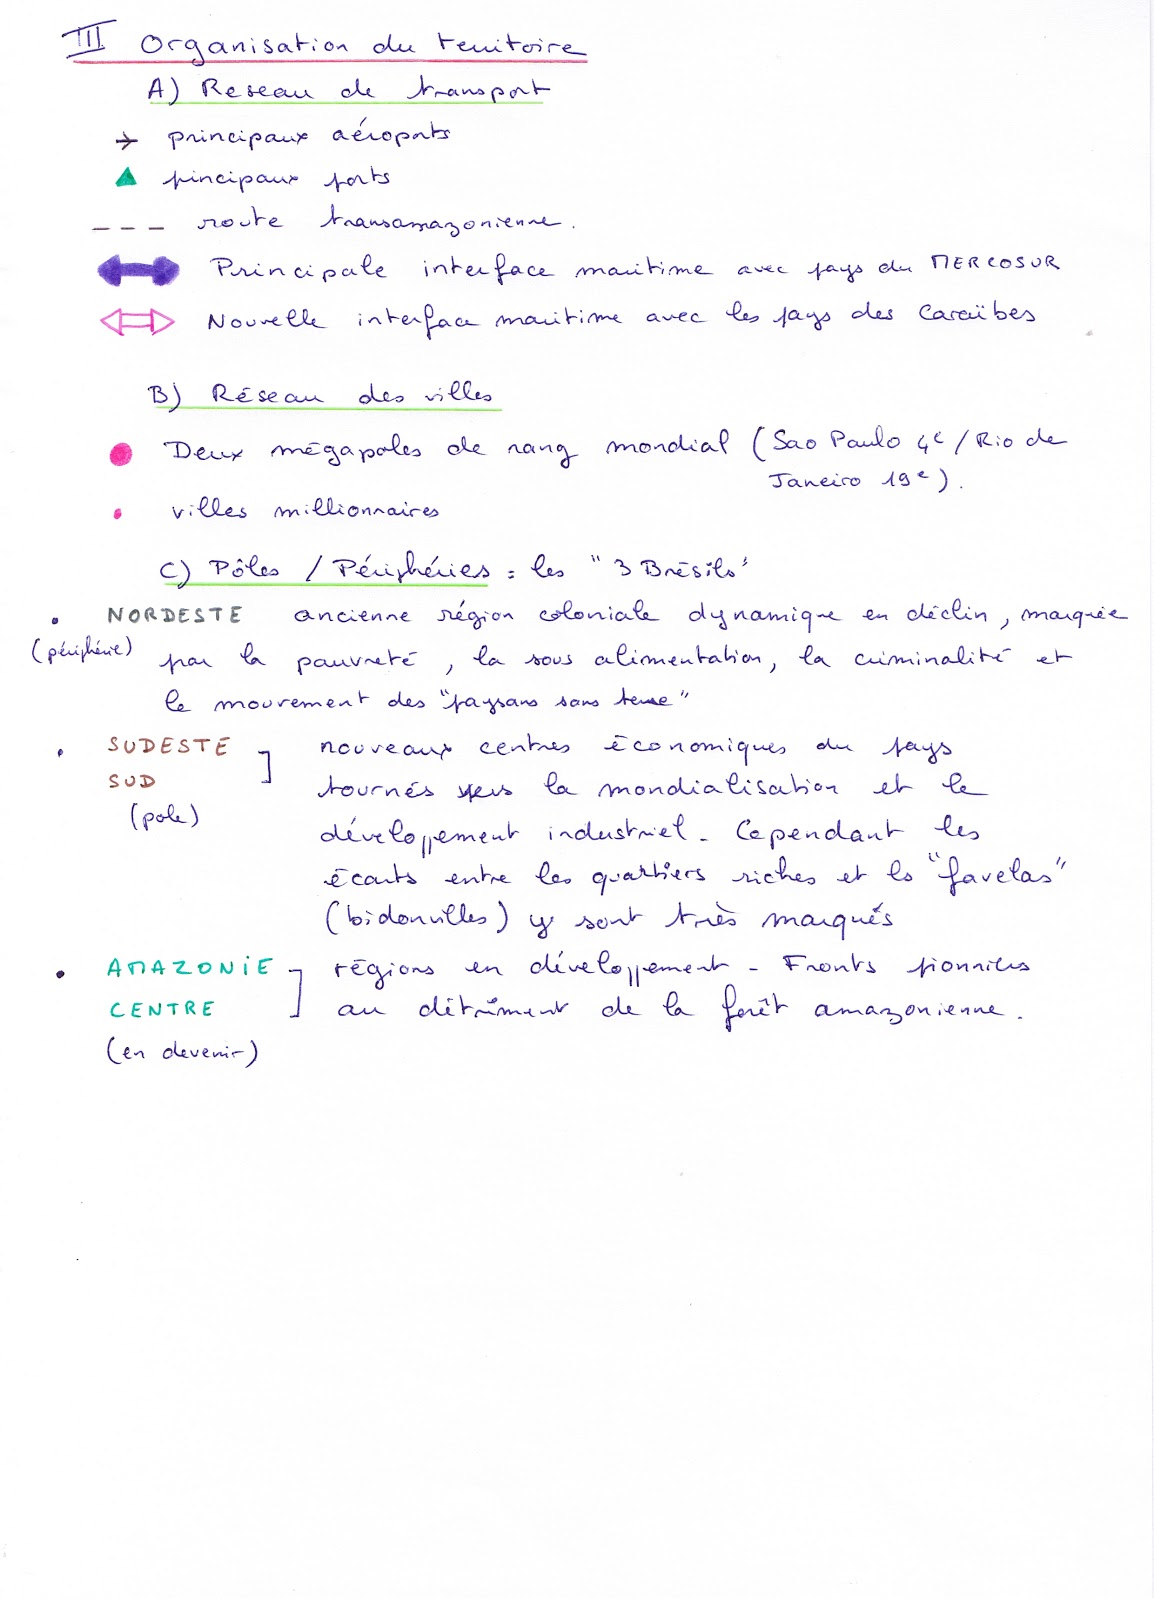 III Organisation du territoire
A) Reseau de transport
principaux aéroports
pincipaux ports
route transamazonienne.
Principale interface maritime avec pays du MERCOSUR
Nouvelle interface maritime avec les pays des Caraïbes
B) Réseau des villes
Deux mégapoles de rang mondial (Sao Paulo 4e / Rio de
Janeiro 19e).
villes millionnaires
C) Pôles / Périphéries : les "3 Brésils"
• NORDESTE ancienne région coloniale dynamique en déclin, marquée
(périphérie) par la pauvreté, la sous alimentation, la criminalité et
le mouvement des "paysans sans terre"
• SUDESTE nouveaux centres économiques du pays
SUD tournés vers la mondialisation et le
(pole) développement industriel. Cependant les
écarts entre les quartiers riches et ls "favelas"
(bidonvilles) y sont très marqués
• AMAZONIE régions en développement - Fronts pionniers
CENTRE au détriment de la forêt amazonienne.
(en devenir)